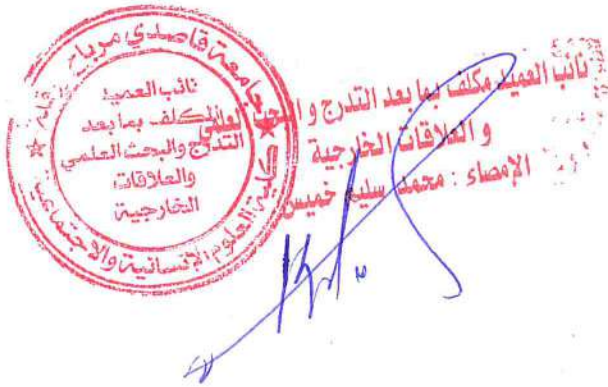 جامعة قاصدي مرباح
نائب العميد
المكلف بما بعد
التدرج والبحث العلمي
والعلاقات
الخارجية
كلية العلوم الإنسانية والاجتماعية
نائب العميد مكلف بما بعد التدرج و البحث العلمي
و العلاقات الخارجية
الإمضاء : محمد سليم خميس